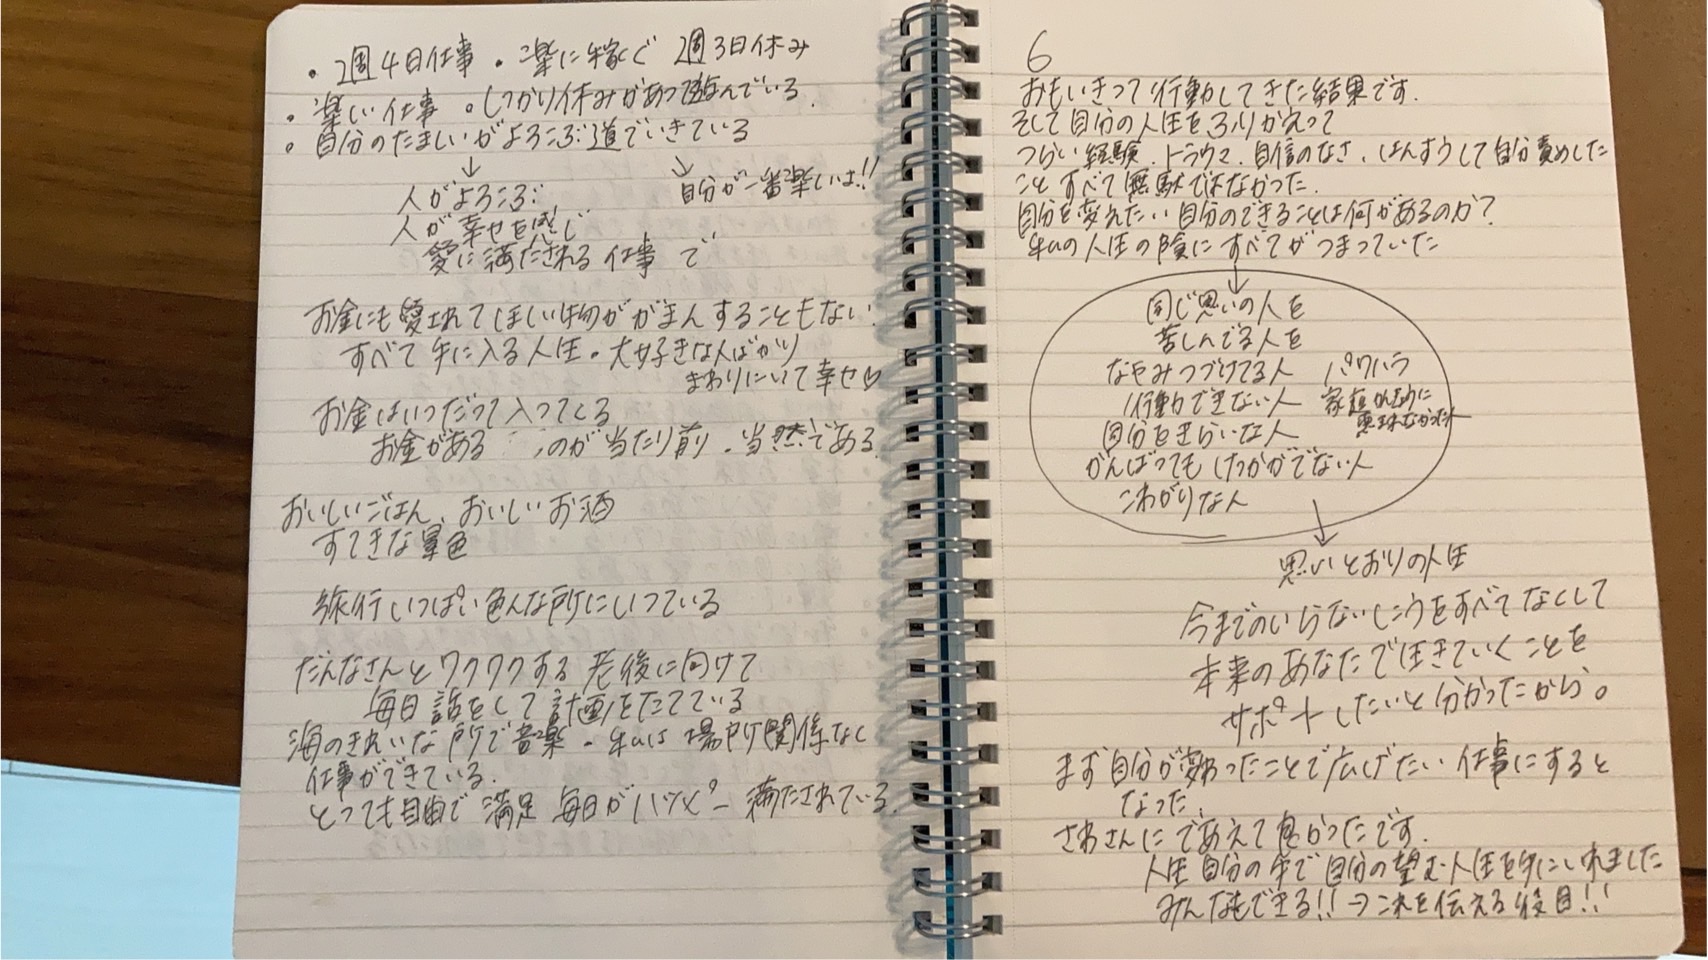 ・週4日仕事 ・楽に稼ぐ 週3日休み
・楽しい仕事 。しっかり休みがあって遊んでいる.
。自分のたましいがよろこぶ道でいきている
↓ ↓
人がよろこぶ 自分が一番楽しいよ!!
人が幸せを感じ
愛に満たされる 仕事 で
お金にも愛されて ほしい物ががまんすることもない.
すべて手に入る人生。大好きな人ばかり
まわりにいて幸せ♡
お金はいつだって入ってくる
お金がある のが当たり前.当然である.
おいしいごはん、おいしいお酒
すてきな景色
旅行いっぱい色んな所にいっている
だんなさんとワクワクする老後に向けて
毎日話をして計画をたてている
海のきれいな所で音楽・私は場所関係なく
仕事ができている.
とっても自由で満足 毎日がハッピー 満たされている.
6
おもいきって行動してきた結果です.
そして自分の人生をふりかえって
つらい経験.トラウマ.自信のなさ.はんすうして自分責めした
ことすべて無駄ではなかった.
自分を変えたい 自分のできることは何があるのか?
私の人生の陰にすべてがつまっていた
↓
同じ思いの人を
苦しんでる人を
なやみつづけてる人 パワハラ
行動できない人 家庭かんきょうに
自分をきらいな人 恵まれなかった人
がんばってもけっかがでない人
こわがりな人
↓
思いどおりの人生
今までのいらないしこうをすべてなくして
本来のあなたで生きていくことを
サポートしたいと分かったから。
まず自分が変わったことで広げたい 仕事にすると
なった.
さわさんにであえて良かったです.
人生自分の手で自分の望む人生を手にいれました
みんなもできる!!→これを伝える役目!!